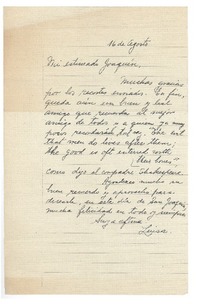 16 de Agosto
Mi estimado Joaquín,
Muchas gracias
por los recortes enviados. En fin,
queda aún un buen y leal
amigo que recuerda al mejor
amigo de todos y a quien ya muy
pocos recuerdan hoy. "The evil
that men do lives after them;
the good is oft interred with
their bones"
como dijo el compadre Shakespeare.
Agradezco mucho su
buen recuerdo y aprovecho para
desearle, en este día de San Joaquín,
mucha felicidad en todo y siempre
Suya afma
Luisa